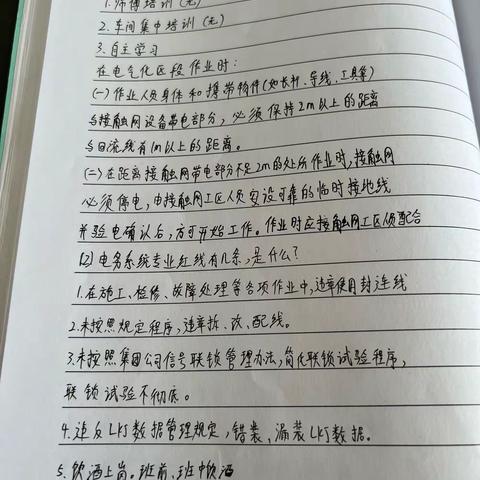 1. 师傅培训(无)
2. 车间集中培训(无)
3. 自主学习
在电气化区段作业时:
(一)作业人员身体和携带物件(如长杆、导线、工具等)
与接触网设备带电部分,必须保持2m以上的距离
与回流线有1m以上的距离。
(二)在距离接触网带电部分不足2m的处所作业时,接触网
必须停电,由接触网工区人员安设可靠的临时接地线
并验电确认后,方可开始工作。作业时应接触网工区人员配合
(2)电务系统专业红线有几条,是什么?
1.在施工、检修、故障处理等各项作业中,违章使用封连线
2.未按照规定程序,违章拆、改、配线。
3.未按照集团公司信号联锁管理办法,简化联锁试验程序,
联锁试验不彻底。
4.违反LKJ数据管理规定,错装、漏装LKJ数据。
5.饮酒上岗。班前、班中饮酒